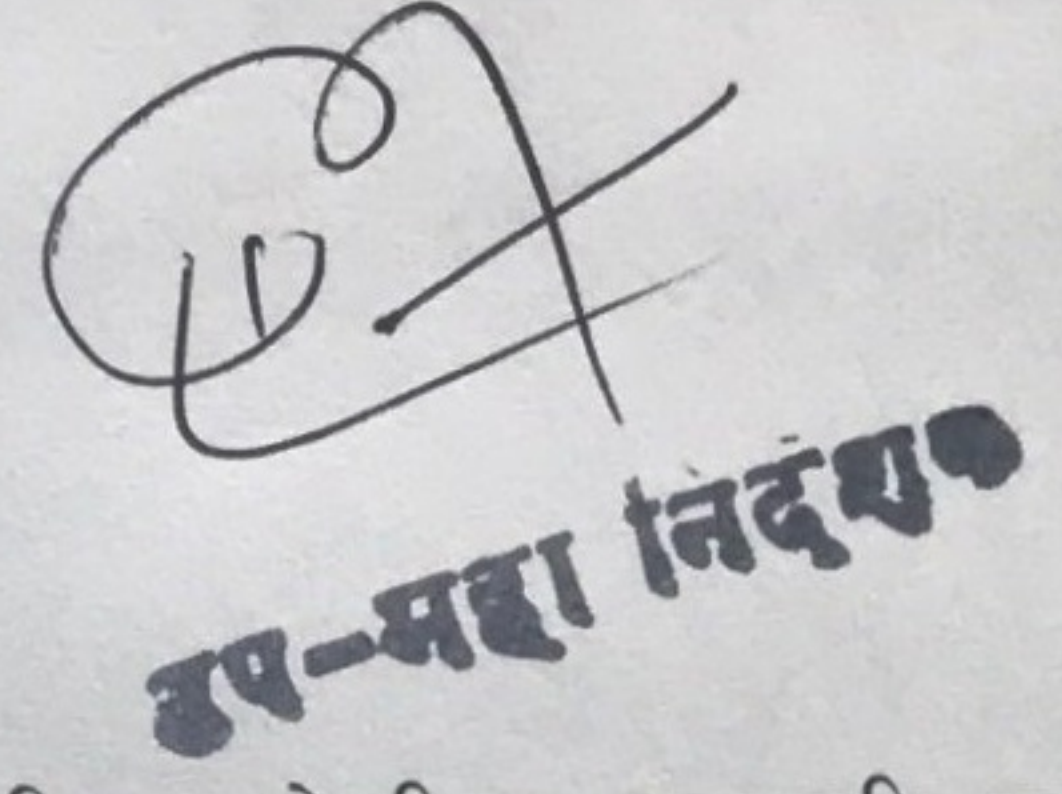 उप-महा निदेशक